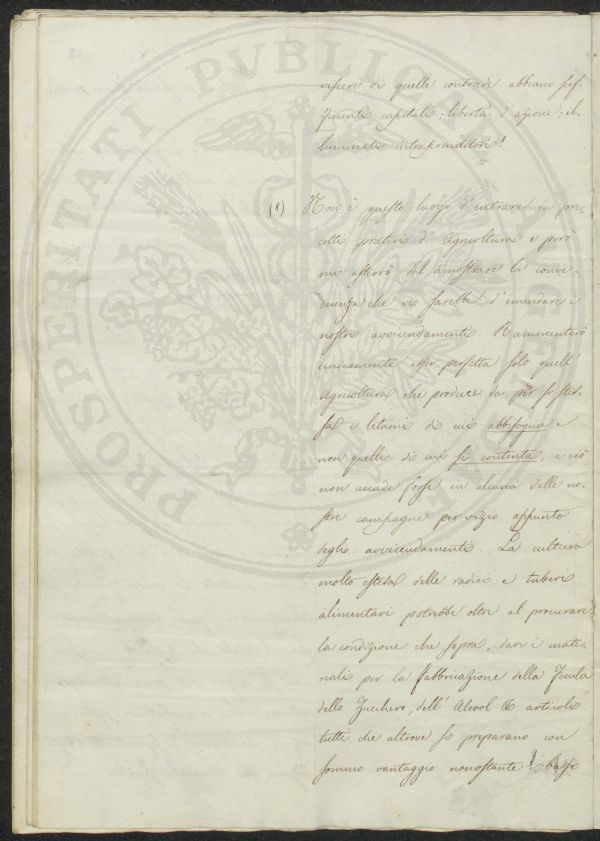 PROSPERITATI PVBLICAE
viscere di quelle contrade abbiano suf-
ficienti capitali; libertà d'azione; il-
luminati intraprenditori!
(8) Non è questo luogo d'entrare in pre-
cetti pratici d'Agricoltura e però
mi asterrò dal dimostrare la conve-
nienza che vi sarebbe d'emendare i
nostri avvicendamenti. Rammenterò
unicamente esser perfetta solo quell'
Agricoltura che produce da per se stes-
sa i letami di cui abbisogna e
non quelle di cui si contenta, e ciò
non accade forse in alcuna delle no-
stre campagne per vizio appunto
degli avvicendamenti. La cultura
molto estesa delle radici e tuberi
alimentari potrebbe oltre al procurare
la condizione che sopra, dare i mate-
riali per la fabbricazione della Fecula
dello Zucchero, dell'Alcool & articoli
tutti che altrove si preparano con
sommo vantaggio nonostante i bassi